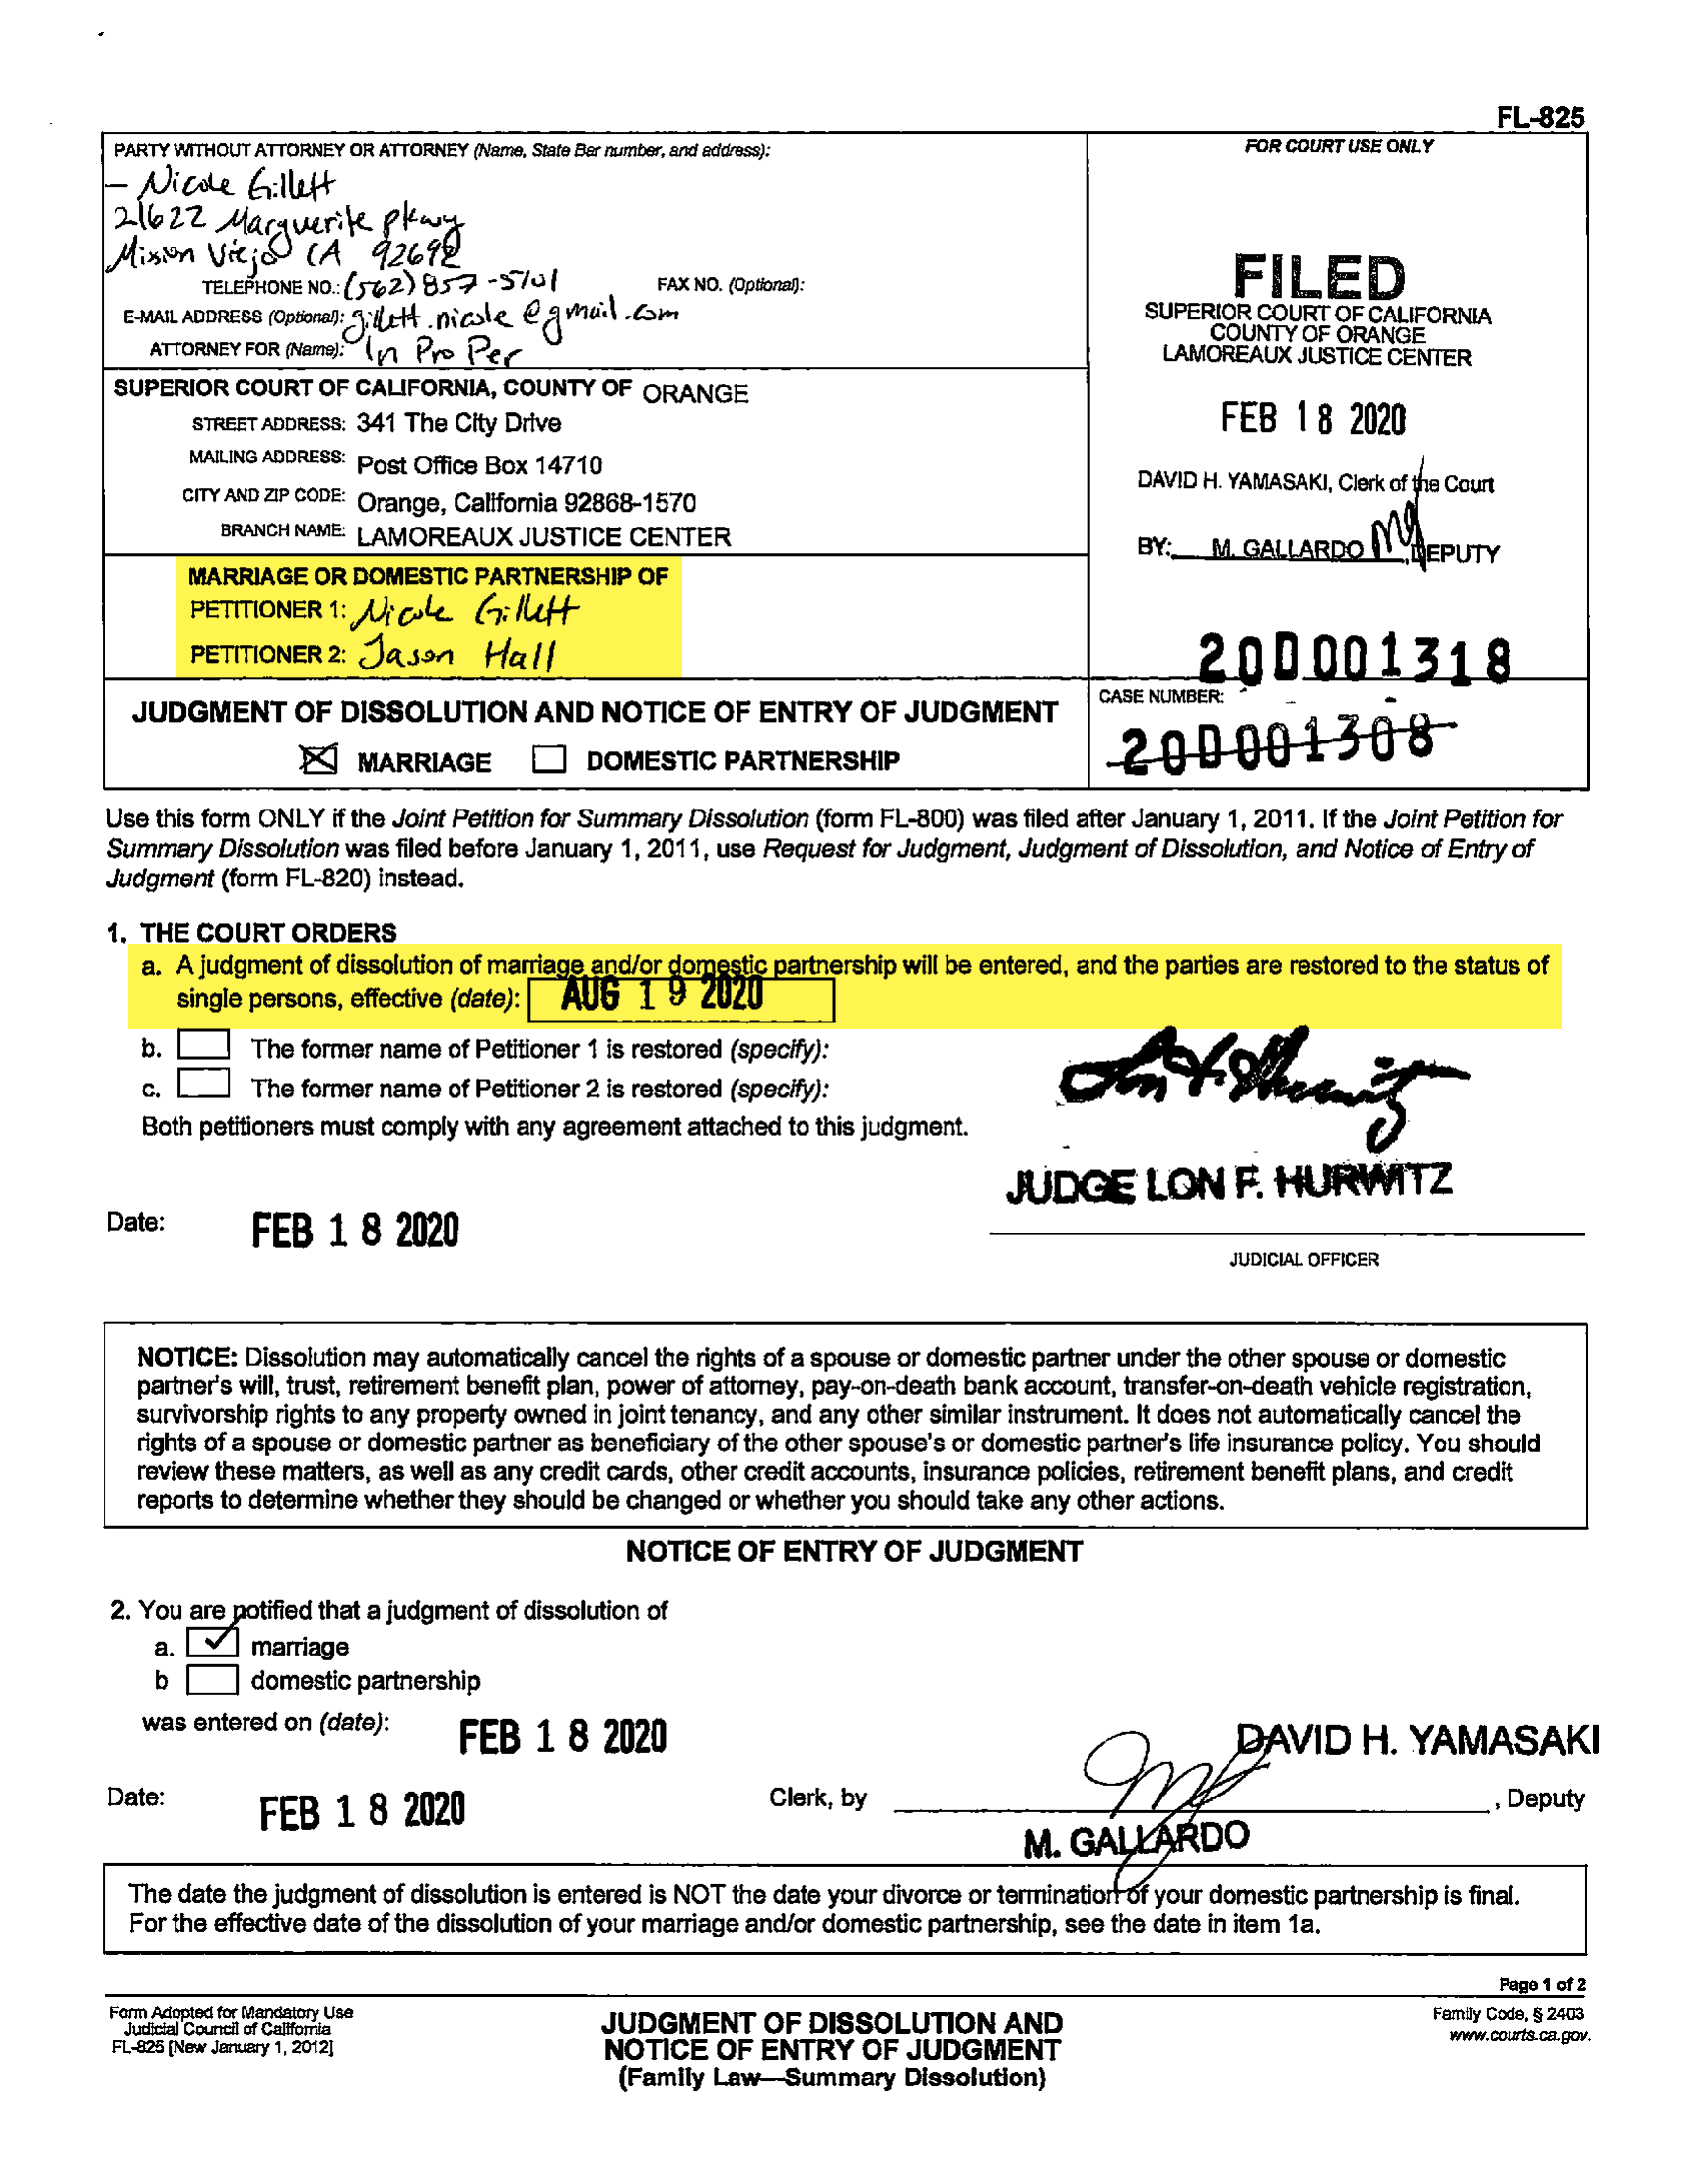 FL-825
PARTY WITHOUT ATTORNEY OR ATTORNEY (Name, State Bar number, and address):
– Nicole Gillett
21622 Marguerite Pkwy
Mission Viejo CA 92692
TELEPHONE NO.: (562) 857-5101
FAX NO. (Optional):
E-MAIL ADDRESS (Optional): gillett.nicole@gmail.com
ATTORNEY FOR (Name): In Pro Per
FOR COURT USE ONLY
FILED
SUPERIOR COURT OF CALIFORNIA
COUNTY OF ORANGE
LAMOREAUX JUSTICE CENTER
FEB 18 2020
DAVID H. YAMASAKI, Clerk of the Court
BY: M. GALLARDO, DEPUTY
SUPERIOR COURT OF CALIFORNIA, COUNTY OF ORANGE
STREET ADDRESS: 341 The City Drive
MAILING ADDRESS: Post Office Box 14710
CITY AND ZIP CODE: Orange, California 92868-1570
BRANCH NAME: LAMOREAUX JUSTICE CENTER
MARRIAGE OR DOMESTIC PARTNERSHIP OF
PETITIONER 1: Nicole Gillett
PETITIONER 2: Jason Hall
20D001318
JUDGMENT OF DISSOLUTION AND NOTICE OF ENTRY OF JUDGMENT
MARRIAGE DOMESTIC PARTNERSHIP
CASE NUMBER:
20D001308
Use this form ONLY if the Joint Petition for Summary Dissolution (form FL-800) was filed after January 1, 2011. If the Joint Petition for
Summary Dissolution was filed before January 1, 2011, use Request for Judgment, Judgment of Dissolution, and Notice of Entry of
Judgment (form FL-820) instead.
1. THE COURT ORDERS
a. A judgment of dissolution of marriage and/or domestic partnership will be entered, and the parties are restored to the status of
single persons, effective (date): AUG 19 2020
b. The former name of Petitioner 1 is restored (specify):
c. The former name of Petitioner 2 is restored (specify):
Both petitioners must comply with any agreement attached to this judgment.
JUDGE LON F. HURWITZ
Date: FEB 18 2020
JUDICIAL OFFICER
NOTICE: Dissolution may automatically cancel the rights of a spouse or domestic partner under the other spouse or domestic
partner's will, trust, retirement benefit plan, power of attorney, pay-on-death bank account, transfer-on-death vehicle registration,
survivorship rights to any property owned in joint tenancy, and any other similar instrument. It does not automatically cancel the
rights of a spouse or domestic partner as beneficiary of the other spouse's or domestic partner's life insurance policy. You should
review these matters, as well as any credit cards, other credit accounts, insurance policies, retirement benefit plans, and credit
reports to determine whether they should be changed or whether you should take any other actions.
NOTICE OF ENTRY OF JUDGMENT
2. You are notified that a judgment of dissolution of
a. marriage
b domestic partnership
was entered on (date): FEB 18 2020
DAVID H. YAMASAKI
Date: FEB 18 2020
Clerk, by , Deputy
M. GALLARDO
The date the judgment of dissolution is entered is NOT the date your divorce or termination of your domestic partnership is final.
For the effective date of the dissolution of your marriage and/or domestic partnership, see the date in item 1a.
Page 1 of 2
Form Adopted for Mandatory Use
Judicial Council of California
FL-825 [New January 1, 2012]
JUDGMENT OF DISSOLUTION AND
NOTICE OF ENTRY OF JUDGMENT
(Family Law—Summary Dissolution)
Family Code, § 2403
www.courts.ca.gov.